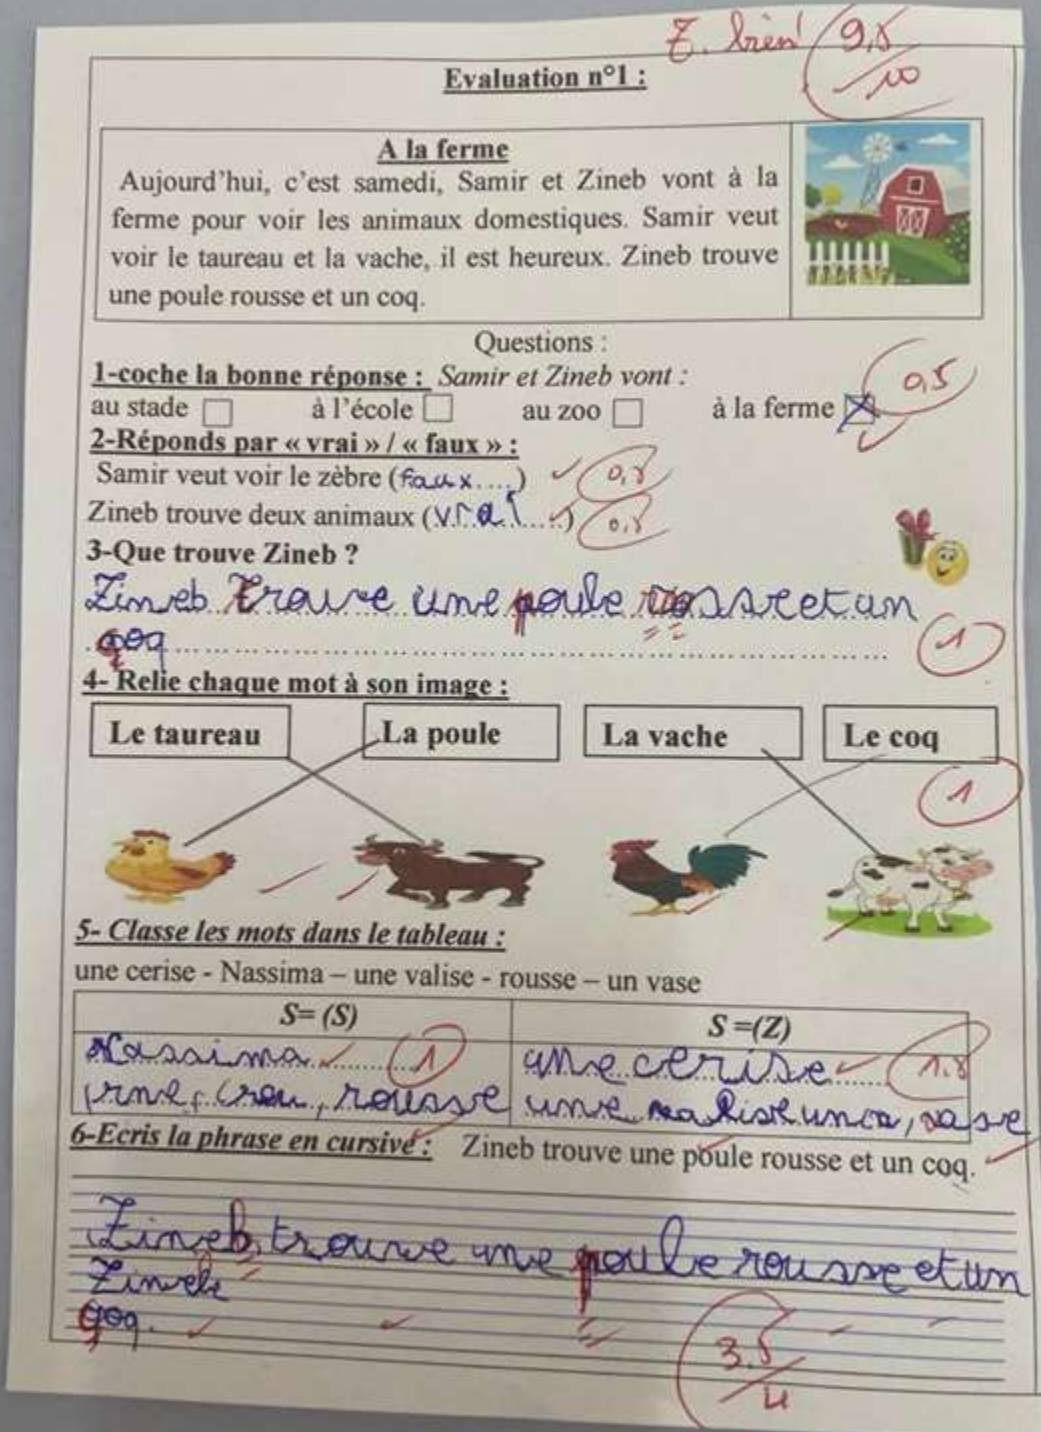 T. bien 9,5/10
Evaluation n°1 :
A la ferme
Aujourd'hui, c'est samedi, Samir et Zineb vont à la
ferme pour voir les animaux domestiques. Samir veut
voir le taureau et la vache, il est heureux. Zineb trouve
une poule rousse et un coq.
Questions :
1-coche la bonne réponse : Samir et Zineb vont :
0,5
au stade à l'école au zoo à la ferme
2-Réponds par « vrai » / « faux » :
Samir veut voir le zèbre (faux....) 0,5
Zineb trouve deux animaux (vrai.....) 0,5
3-Que trouve Zineb ?
Zineb trouve une poule rosse et un
qoq
1
4- Relie chaque mot à son image :
Le taureau La poule La vache Le coq
1
5- Classe les mots dans le tableau :
une cerise - Nassima – une valise - rousse – un vase
S= (S) S =(Z)
Nassima 1 une cerise 1.5
, rousse une
6-Ecris la phrase en cursive : Zineb trouve une poule rousse et un coq.
Zineb trouve une poule rousse et un
Zineb
qoq.
3.5/4